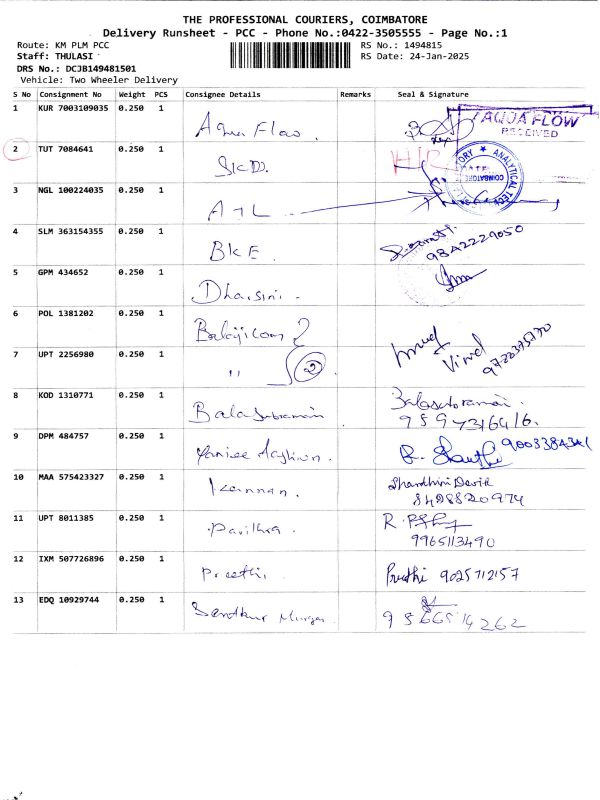 THE PROFESSIONAL COURIERS, COIMBATORE
Delivery Runsheet - PCC - Phone No.:0422-3505555 - Page No.:1
Route: KM PLM PCC
RS No.: 1494815
Staff: THULASI
RS Date: 24-Jan-2025
DRS No.: DCJB149481501
Vehicle: Two Wheeler Delivery
S No Consignment No Weight PCS Consignee Details Remarks Seal & Signature
1 KUR 7003109035 0.250 1 Aqua Flow. AQUA FLOW
RECEIVED
2 TUT 7084641 0.250 1
ANALYTICAL COIMBATORE
3 NGL 100224035 0.250 1 ATL
4 SLM 363154355 0.250 1 BKE 9842229050
5 GPM 434652 0.250 1 Dharsini.
6 POL 1381202 0.250 1 Balajicom
7 UPT 2256980 0.250 1 " 2 Vinod
8 KOD 1310771 0.250 1 Balasubramani Balasubramani.
9597316416.
9 DPM 484757 0.250 1
10 MAA 575423327 0.250 1 Kannan. Shandhini Devi
8428820974
11 UPT 8011385 0.250 1 Pavithra.
9965113490
12 IXM 507726896 0.250 1 Preethi. Preethi 9025712157
13 EDQ 10929744 0.250 1